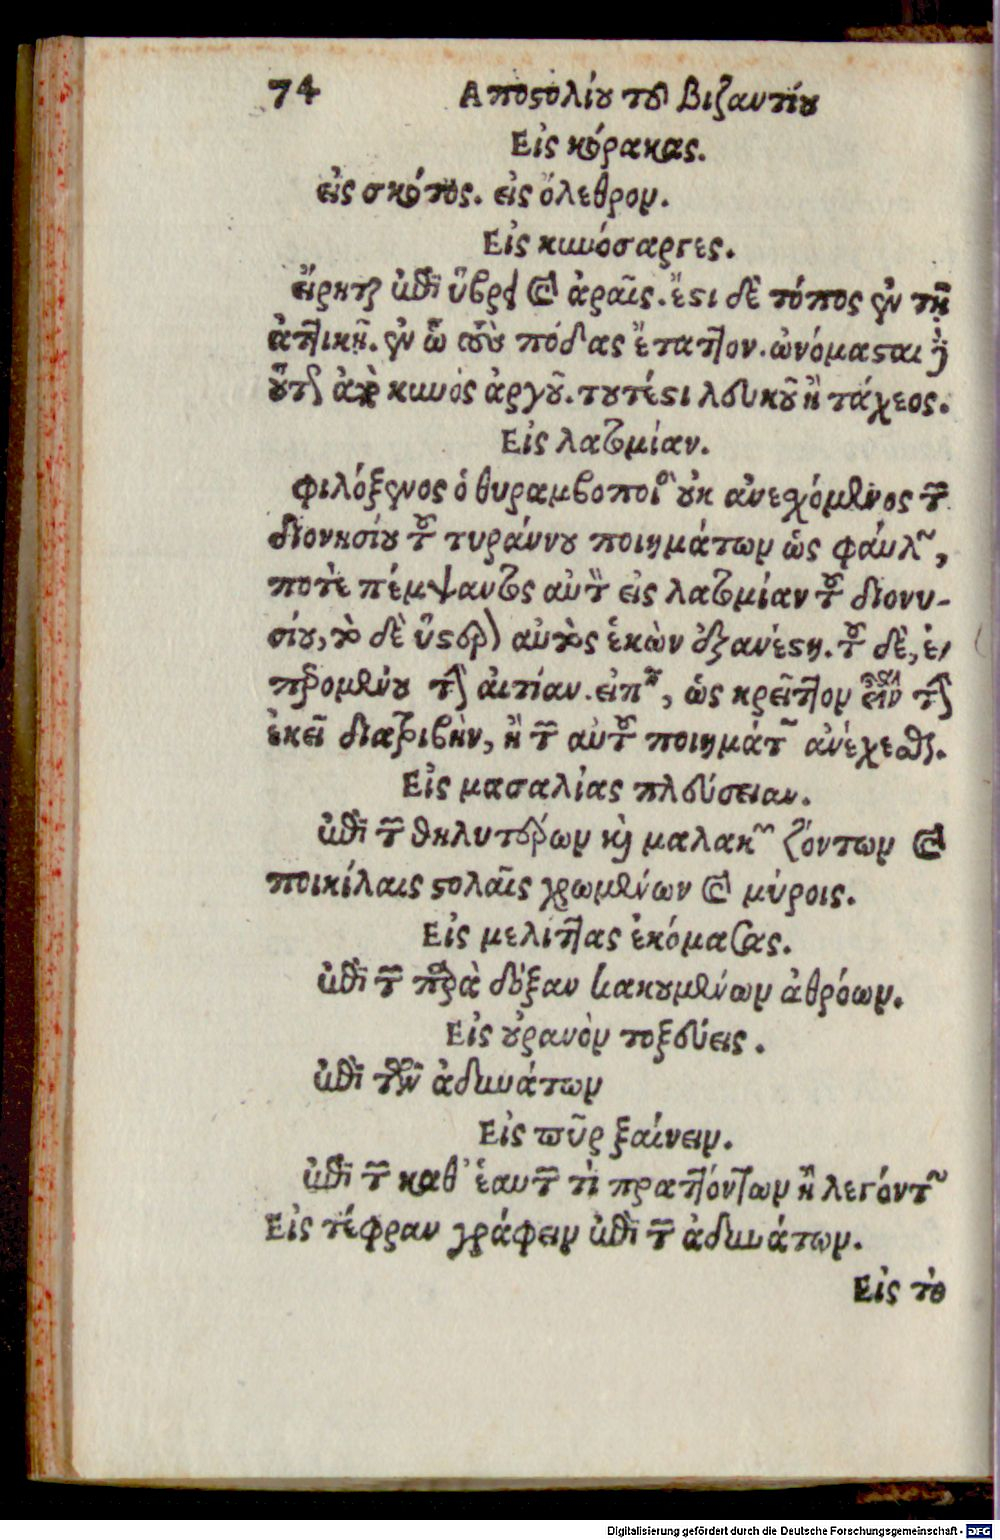 74 Αποστολίου τοῦ Βιζαντίου
Εἰς κόρακας.
εἰς σκότος. εἰς ὄλεθρον.
Εἰς κυνόσαργες.
εἴρηται ἐπὶ ὕβρει καὶ ἀραῖς. ἔστι δὲ τόπος ἐν τῇ
ἀττικῇ. ἐν ᾧ τοὺς πόδας ἔταττον. ὠνόμασται
οὕτως ἀπὸ κυνὸς ἀργοῦ. τουτέστι λευκοῦ ἢ τάχεος.
Εἰς λατομίαν.
φιλόξενος ὁ θυραμβοποιὸς οὐκ ἀνεχόμενος τῶν
διονησίου τοῦ τυράννου ποιημάτων ὡς φαύλων,
ποτὲ πέμψαντος αὐτὸν εἰς λατομίαν τοῦ διονυ-
σίου, τὸ δὲ ὕστερον αὐτὸς ἑκὼν ἐξανέστη. τοῦ δὲ, ἐ-
περομένου τὴν αἰτίαν. εἶπεν, ὡς κρεῖττον εἶναι τὴν
ἐκεῖ διατριβὴν, ἢ τῶν αὐτοῦ ποιημάτων ἀνέχεσθαι.
Εἰς μασαλίας πλεύσειαν.
ἐπὶ τῶν θηλυτέρων καὶ μαλακῶς ζόντων καὶ
ποικίλαις στολαῖς χρωμένων καὶ μύροις.
Εἰς μελίττας ἐκόμασας.
ἐπὶ τῶν παρὰ δόξαν κακουμένων ἀθρόων.
Εἰς οὐρανὸν τοξεύεις.
ἐπὶ τῶν ἀδυνάτων
Εἰς πῦρ ξαίνειν.
ἐπὶ τῶν καθ' ἑαυτῶν τὶ πραττόντων ἢ λεγόντων
Εἰς τέφραν γράφειν ἐπὶ τῶν ἀδυνάτων.
Εἰς τὸ
Digitalisierung gefördert durch die Deutsche Forschungsgemeinschaft - DFG